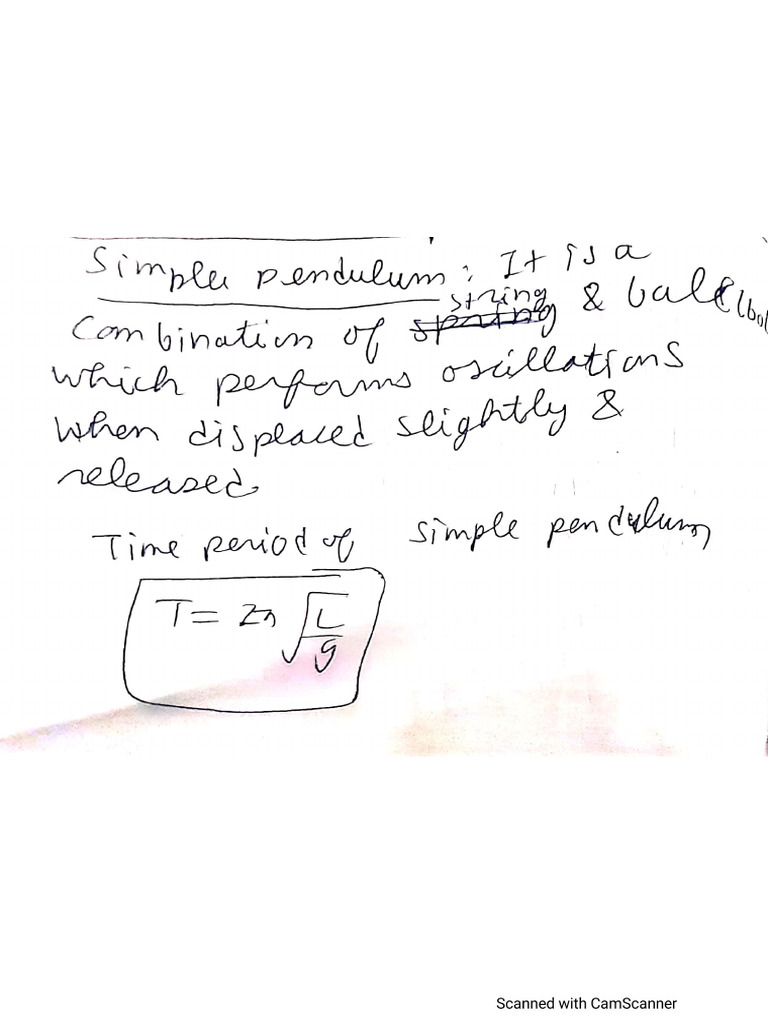 Simple pendulum: It is a
Combination of string & ball (bo
which performs oscillations
when displaced slightly &
released
Time period of simple pendulum
T = 2π √L/g
Scanned with CamScanner